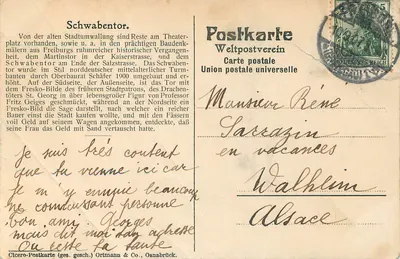 Schwabentor.
Von der alten Stadtumwallung sind Reste am Theater-
platz vorhanden, sowie u. a. in den prächtigen Baudenk-
mälern aus Freiburgs ruhmreicher historischer Vergangen-
heit, dem Martinstor in der Kaiserstrasse, und dem
Schwabentor am Ende der Salzstrasse. Das Schwabentor
wurde im Stil norddeutscher mittelalterlicher Turm-
bauten durch Oberbaurat Schäfer 1900 umgebaut und er-
höht. Auf der Südseite, der Außenseite, ist das Tor mit
dem Fresko-Bilde des früheren Stadtpatrons, des Drachen-
töters St. Georg in über lebensgroßer Figur von Professor
Fritz Geiges geschmückt, während an der Nordseite ein
Fresko-Bild die Sage darstellt, nach welcher ein reicher
Bauer einst die Stadt kaufen wollte, und dabei, als er mit
dem Geld auf seinem Wagen angekommen, entdeckte, daß
seine Frau das Geld mit Sand vertauscht hatte.
Je suis très content
que tu vienne ici car
je m'y ennuie beaucoup
ne connaissant personne
ton ami Georges
mais dit moi ton adresse
Ou reste ta tante
Cicero-Postkarte (ges. gesch.) Ortmann & Co., Osnabrück.
Postkarte
Weltpostverein
Carte postale
Union postale universelle
Monsieur Réné
Sarrazin
en vacances
Walheim
Alsace